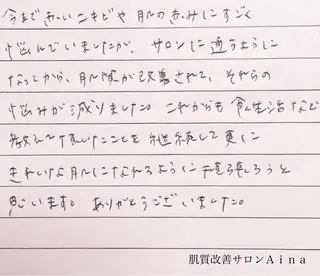 今まで赤いニキビや肌の赤みにすごく
悩んでいましたが、サロンに通うように
なってから、肌状態が改善されて、それらの
悩みが減りました。これからも食生活など
教えて頂いたことを継続して更に
きれいな肌になれるように頑張ろうと
思います。ありがとうございました。
肌質改善サロンAina